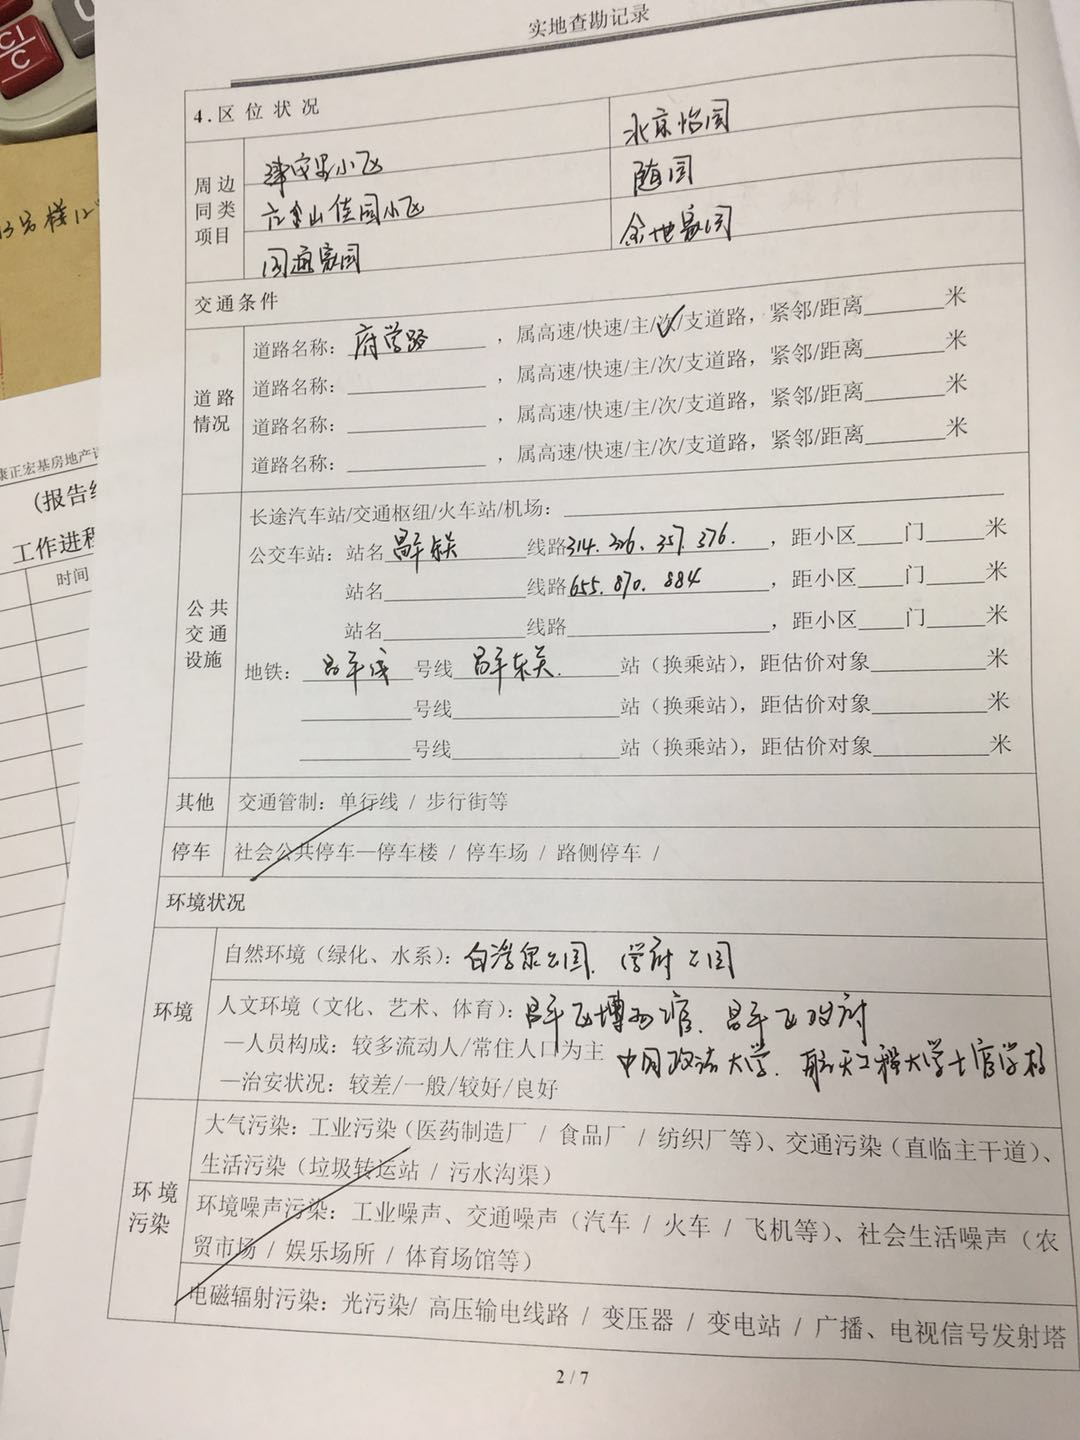 实地查勘记录
4.区位状况
周边同类项目
建安里小区
北京怡园
六金山佳园小区
随园
国通家园
金地家园
交通条件
道路情况
道路名称：府学路，属高速/快速/主/次/支道路，紧邻/距离 米
道路名称： ，属高速/快速/主/次/支道路，紧邻/距离 米
道路名称： ，属高速/快速/主/次/支道路，紧邻/距离 米
道路名称： ，属高速/快速/主/次/支道路，紧邻/距离 米
公共交通设施
长途汽车站/交通枢纽/火车站/机场：
公交车站：站名 昌平东关 线路 314. 326、357. 376. ，距小区 门 米
站名 线路 655. 870. 884 ，距小区 门 米
站名 线路 ，距小区 门 米
地铁：昌平线 号线 昌平东关. 站（换乘站），距估价对象 米
号线 站（换乘站），距估价对象 米
号线 站（换乘站），距估价对象 米
其他 交通管制：单行线 / 步行街等
停车 社会公共停车—停车楼 / 停车场 / 路侧停车 /
环境状况
环境
自然环境（绿化、水系）：白浮泉公园. 学府公园
人文环境（文化、艺术、体育）：昌平区博物馆、昌平区政府
—人员构成：较多流动人/常住人口为主 中国政法大学. 航天工程大学士官学校
—治安状况：较差/一般/较好/良好
环境污染
大气污染：工业污染（医药制造厂 / 食品厂 / 纺织厂等）、交通污染（直临主干道）、
生活污染（垃圾转运站 / 污水沟渠）
环境噪声污染：工业噪声、交通噪声（汽车 / 火车 / 飞机等）、社会生活噪声（农
贸市场 / 娱乐场所 / 体育场馆等）
电磁辐射污染：光污染/ 高压输电线路 / 变压器 / 变电站 / 广播、电视信号发射塔
2 / 7
C/C
号楼12
康正宏基房地产
（报告
工作进程
时间